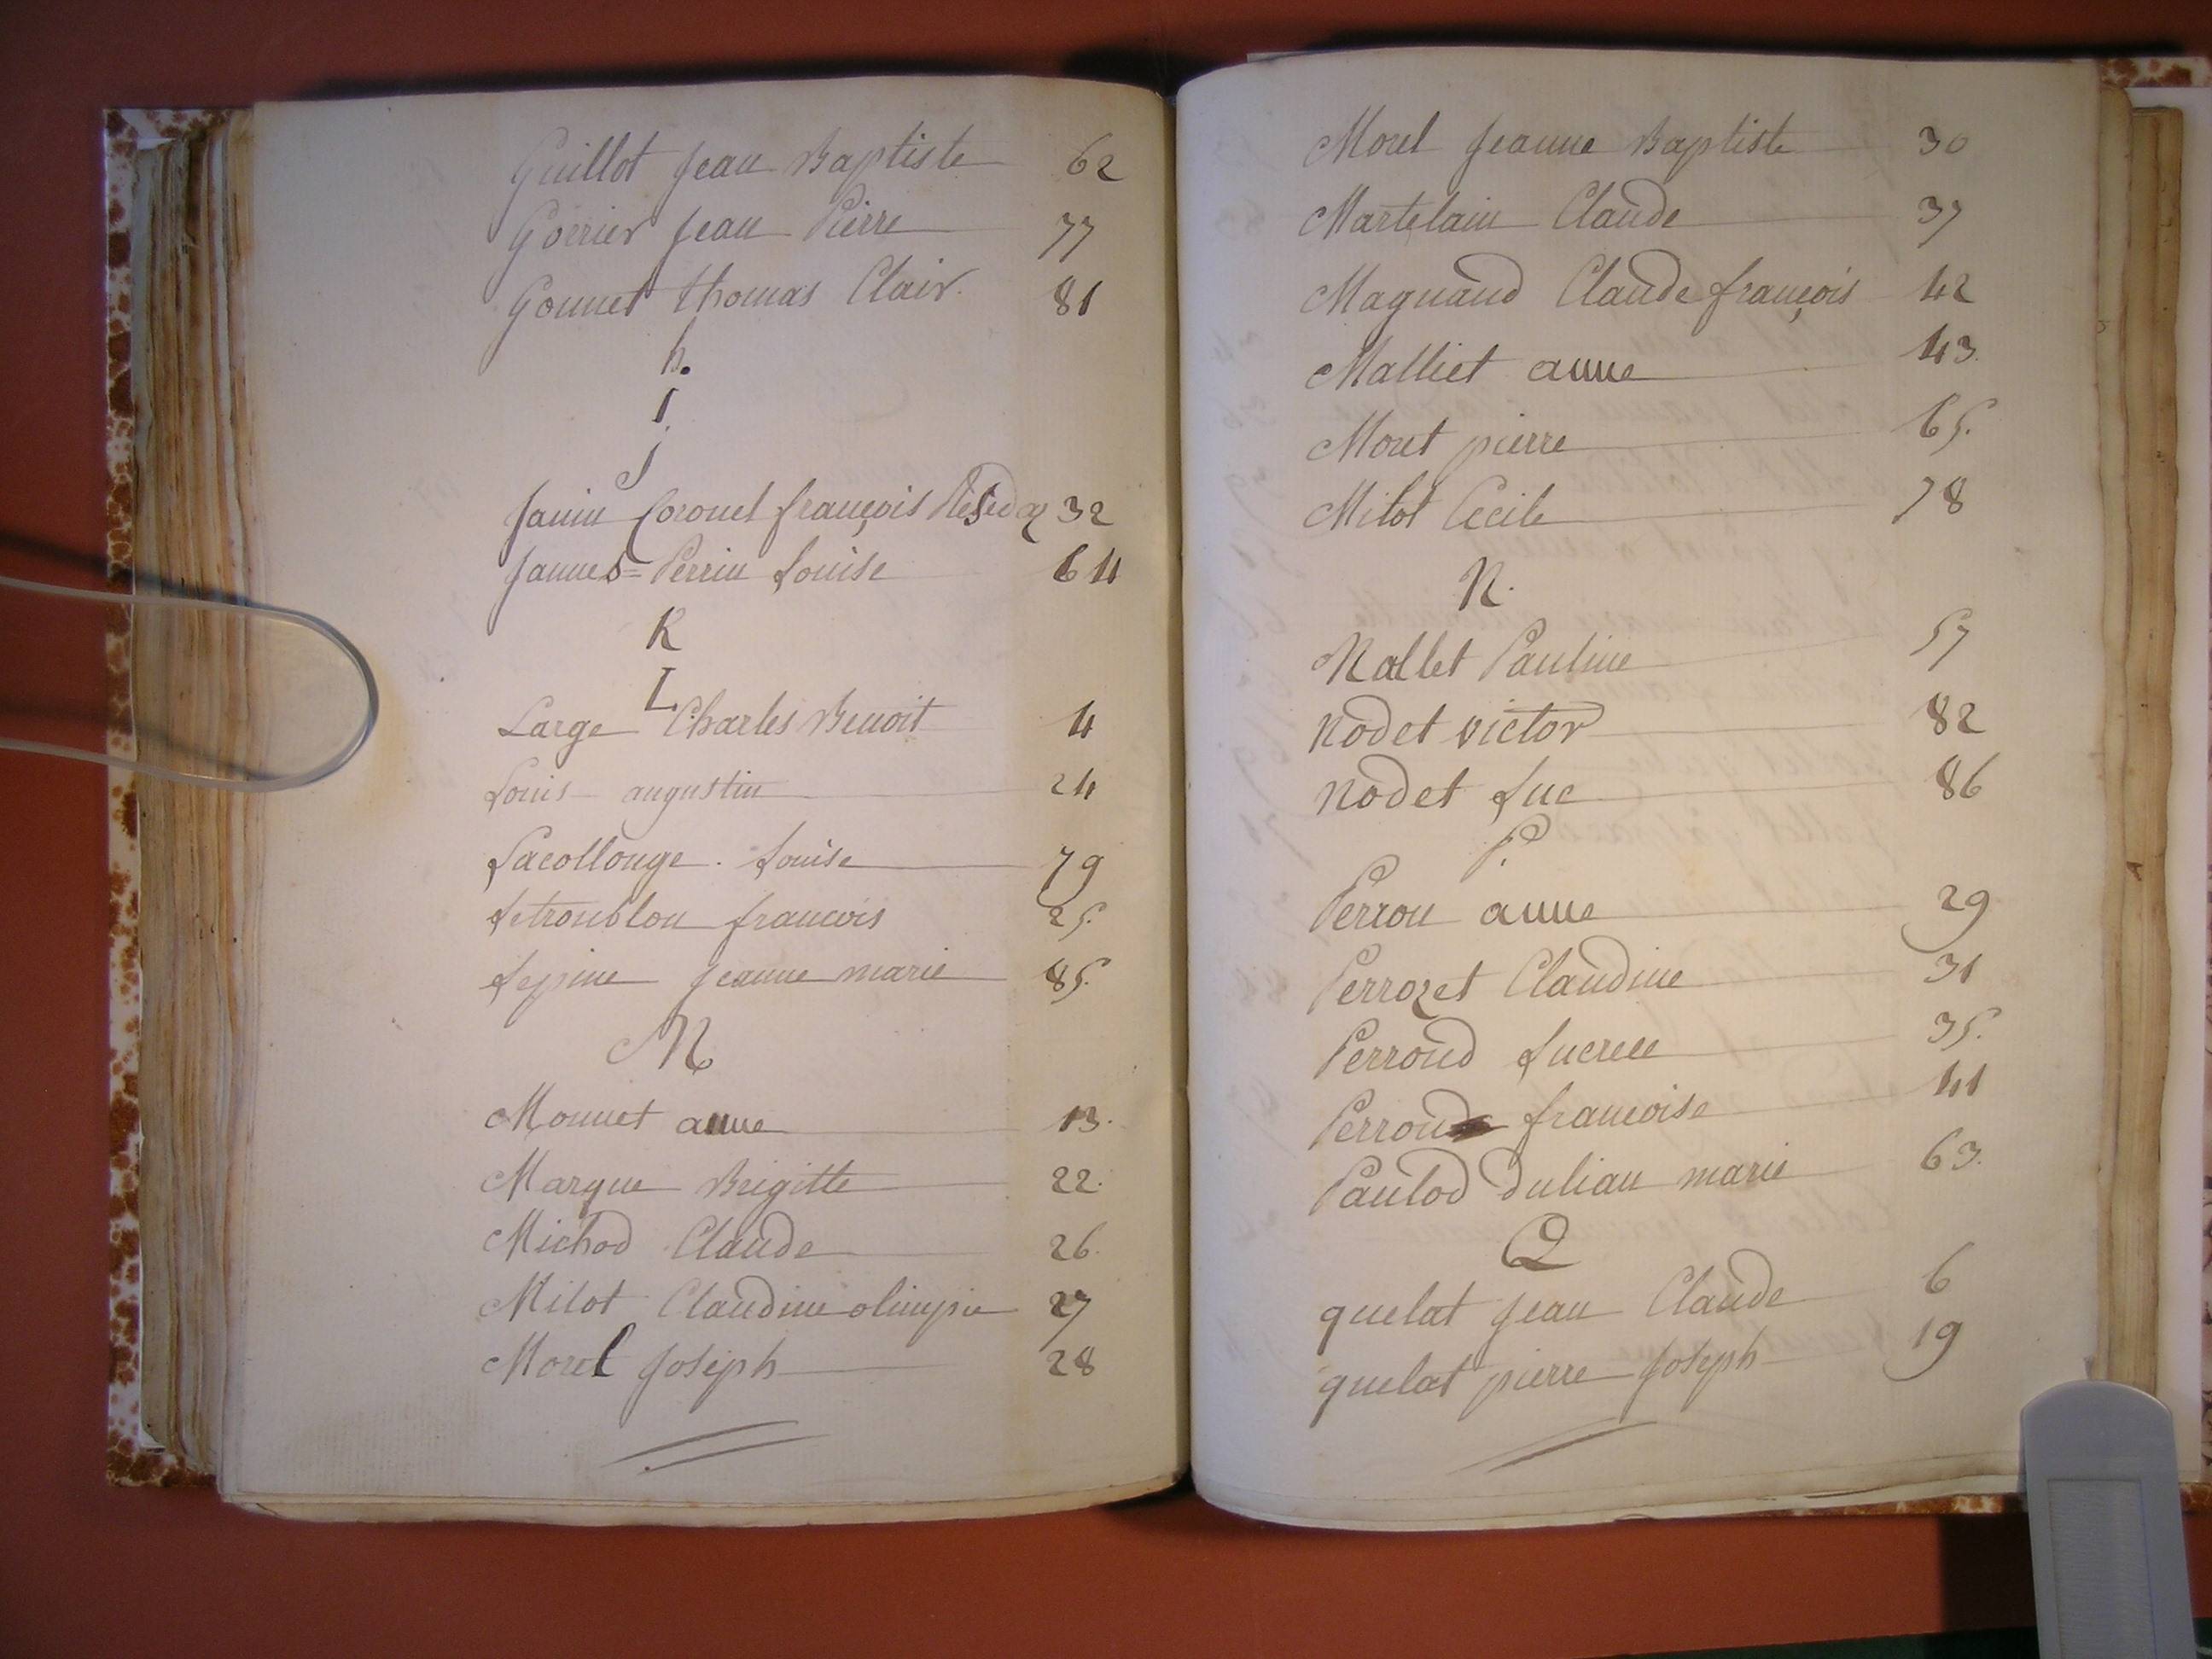 Guillot Jean Baptiste 62
Goërier Jean Pierre 77
Gonnet thomas Clair. 81
h.
I
J
Janin Coronel françois 32
Jannes = Perrin Louise 64
K
L
Large Charles Benoit 4
Louis augustin 24
Lacollonge. Louise 79
Letroublon francois 25.
Lepine Jeanne marie 85.
M
Monnet anne 13.
Marque Brigitte 22.
Michod Claude 26.
Milot Claudine olimpie 27
Morel Joseph 28
Morel Jeanne Baptiste 30
Martelain Claude 37
Magnaud Claude françois 42
Malliet anne 43.
Moret pierre 65.
Milot Cecile 78
N.
Nallet Pauline 57
Nodet victor 82
Nodet Luc 86
P.
Perron anne 29
Perrozet Claudine 31
Perroud Lucrece 35.
Perroud francoise 41
Paulod Julian marie 63.
Q
quelat Jean Claude 6
quelat pierre Joseph 19